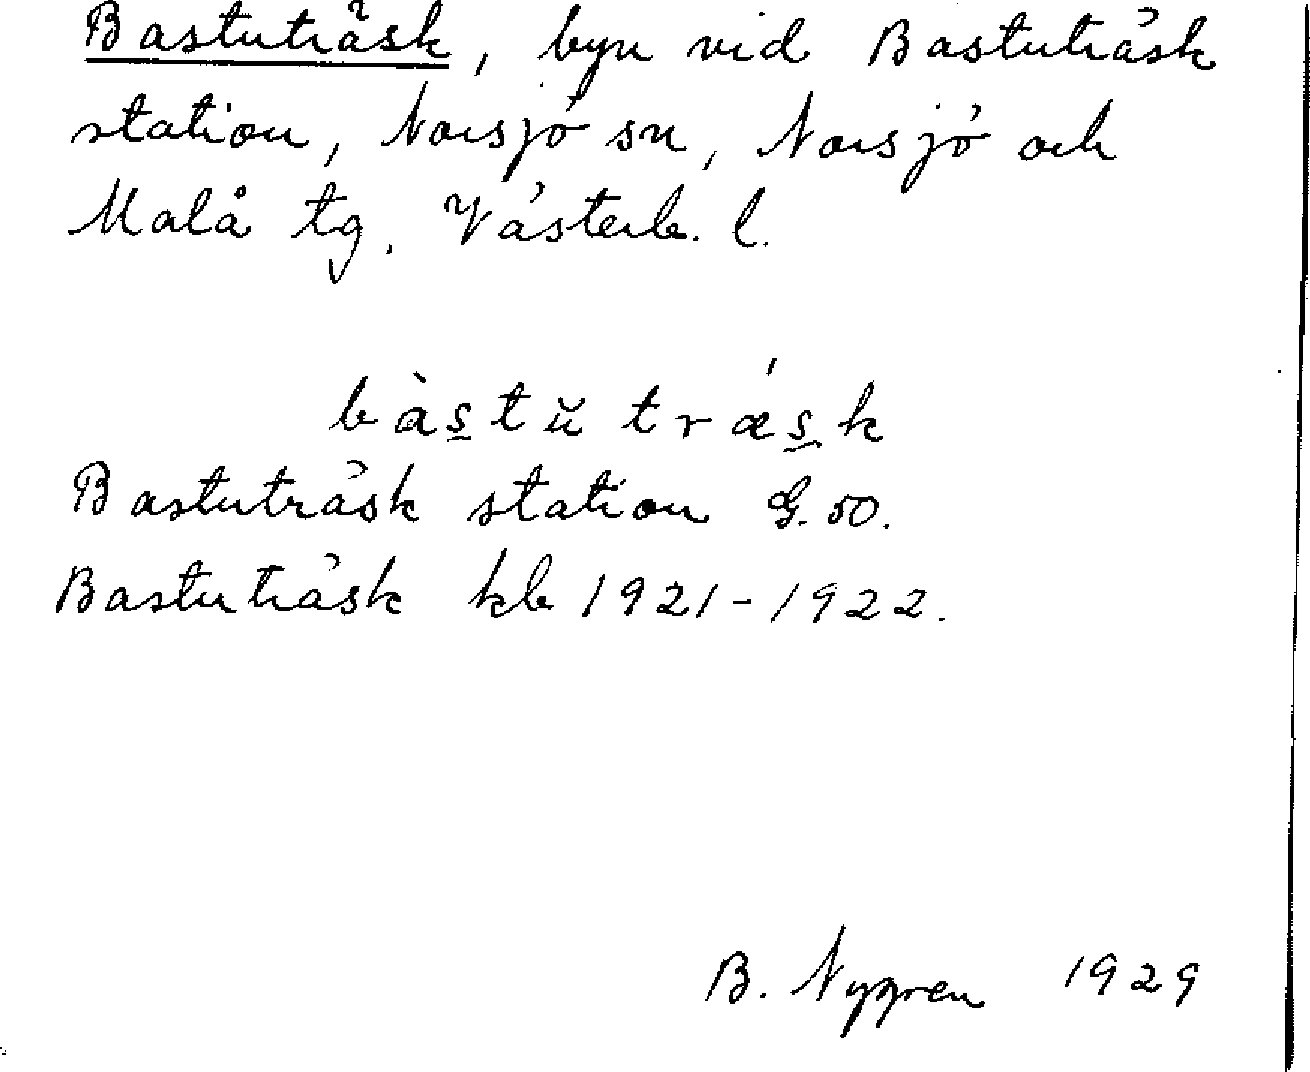 Bastuträsk, byn vid Bastuträsk
station, Norsjö sn, Norsjö och
Malå tg. Västerb. l.
bàs̱tŭ træ´s̱k
Bastuträsk station G. 50.
Bastuträsk kb 1921-1922.
B. Nygren 1929